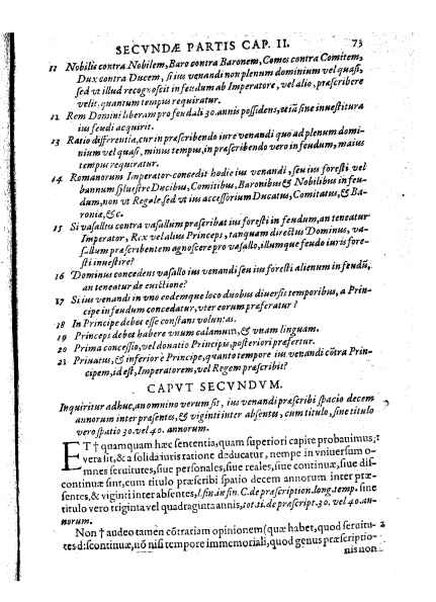 SECVNDÆ PARTIS CAP. II. 73
12 Nobilis contra Nobilem, Baro contra Baronem, Comes contra Comitem,
Dux contra Ducem, si ius venandi non plenum dominium vel quasi,
sed vt illud recognoscit in feudum ab Imperatore, vel alio, præscribere
velit quantum tempus requiratur.
12 Rem Domini liberam pro feudali 30. annis possidens, etiā sine inuestitura
ius feudi acquirit.
13 Ratio differentia, cur in præscribendo iure venandi quo ad plenum domi-
nium vel quasi, minus tempus, in præscribendo vero in feudum, maius
tempus requiratur.
14 Romanorum Imperator concedit hodie ius venandi, seu ius foresti vel
bannum siluestre Ducibus, Comitibus, Baronibus & Nobilibus in feu-
dum, non vt Regale, sed vt ius accessorium Ducatus, Comitatus, & Ba-
roniæ, &c.
15 Si vasallus contra vasallum præscribat ius foresti in feudum, an teneatur
Imperator, Rex vel alius Princeps, tanquam directus Dominus, va-
sallum præscribentem agnoscere pro vasallo, illumque feudo iuris fore-
sti inuestire?
16 Dominus concedens vasallo ius venandi seu ius foresti alienum in feudū,
an teneatur de euictione?
17 Si ius venandi in vno eodemque loco duobus diuersis temporibus, a Prin-
cipe in feudum concedatur, vter eorum præferatur?
18 In Principe debet esse constans voluntas.
19 Princeps debet habere vnum calamum, & vnam linguam.
20 Prima concessio, vel donatio Principis, posteriori præfertur.
21 Priuatus, & inferior è Principe, quanto tempore ius venandi cōtra Prin-
cipem, id est, Imperatorem, vel Regem præscribit?
CAPVT SECVNDVM.
Inquiritur adhuc, an omnino verum sit, ius venandi præscribi spatio decem
annorum inter præsentes, & viginti inter absentes, cum titulo, sine titulo
vero spatio 30. vel 40. annorum.
ET † quamquam hæc sententia, quam superiori capite probauimus,
vera sit, & a solida iuris ratione deducatur, nempe in vniuersum o-
mnes seruitutes, siue personales, siue reales, siue continuæ, siue dis-
continuæ sint, cum titulo, spacio decem annorum inter præ-
sentes, & viginti inter absentes, l. fin. in fin. C. de præscription. long. temp. sine
titulo vero triginta vel quadraginta annis, tot. ti. de præscript. 30. vel 40. an-
norum.
Non † audeo tamen cōtrariam opinionem (quæ habet, quod seruitu- 2
tes discontinuæ, nō nisi tempore immemoriali, quod genus præscriptio-
nis non